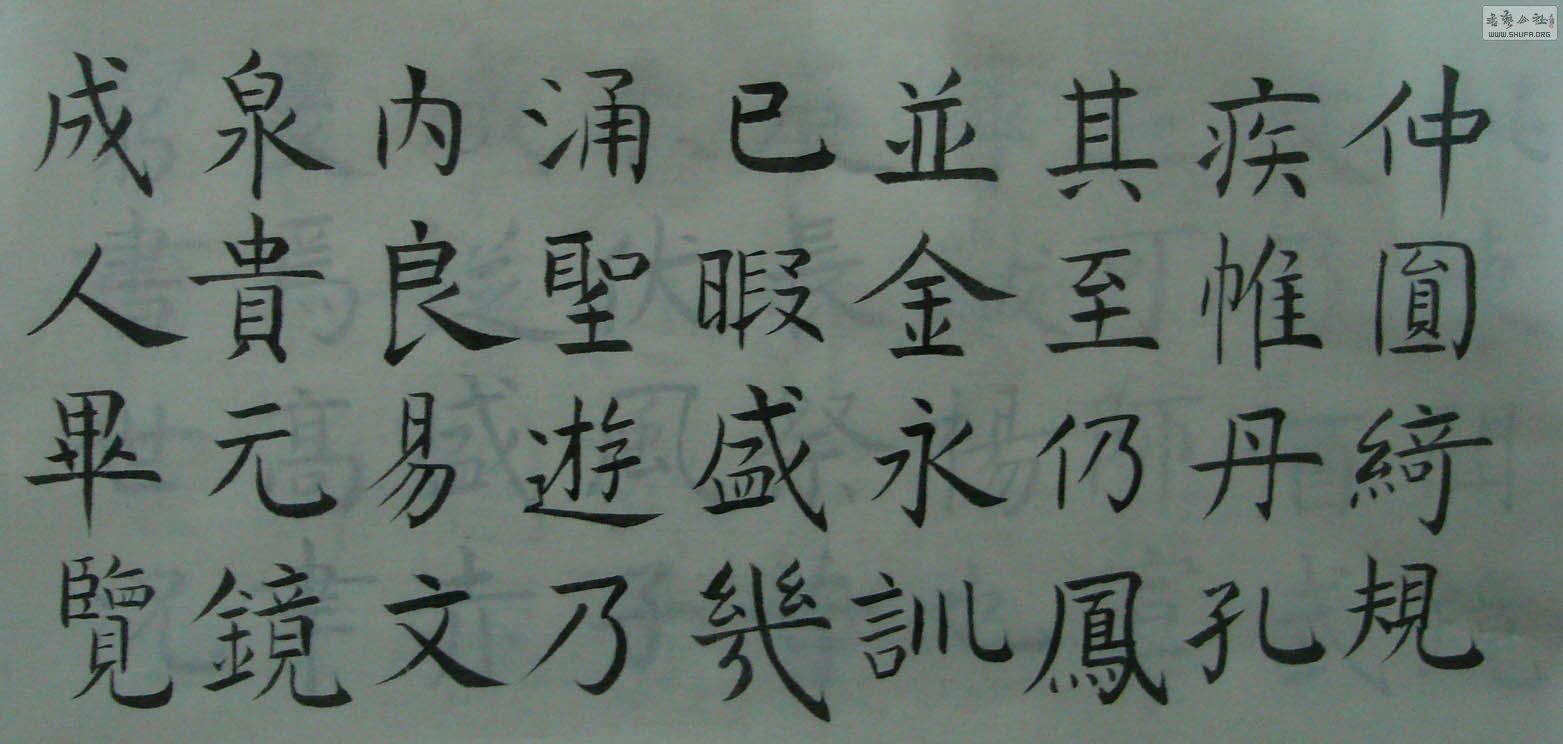 仲圎綺規
疾帷丹孔
其至仍鳳
並金永訓
已暇盛幾
涌聖遊乃
内良易文
泉貴元鏡
成人畢覽
WWW.SHUFA.ORG